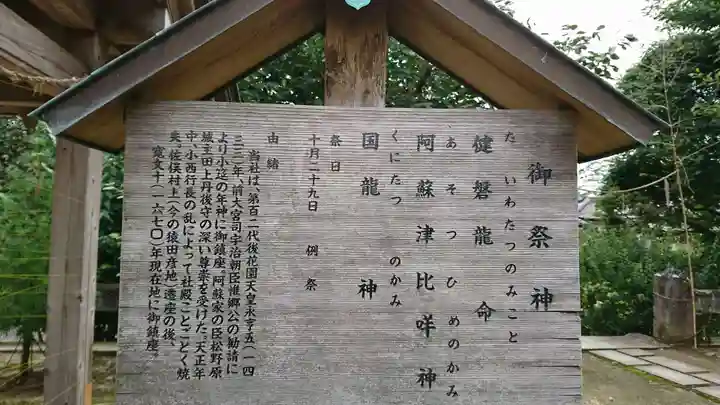 御祭神
たいわたつのみこと
健磐龍命
あそつひめのかみ
阿蘇津比咩神
くにたつのかみ
国龍神
祭日
十月二十九日 例祭
由緒
当社は、第百二代後花園天皇永享五(一四
三三)年、前大宮司宇治朝臣惟郷公の勧請に
より小迫の年神に御鎮座、阿蘇家の臣松野原
城主田上丹後守の深い尊崇を受けた。天正年
中、小西行長の乱によって社殿ことごとく焼
失、佐俣村上(今の猿田彦地)遷座の後、
寛文十(一六七〇)年現在地に御鎮座。